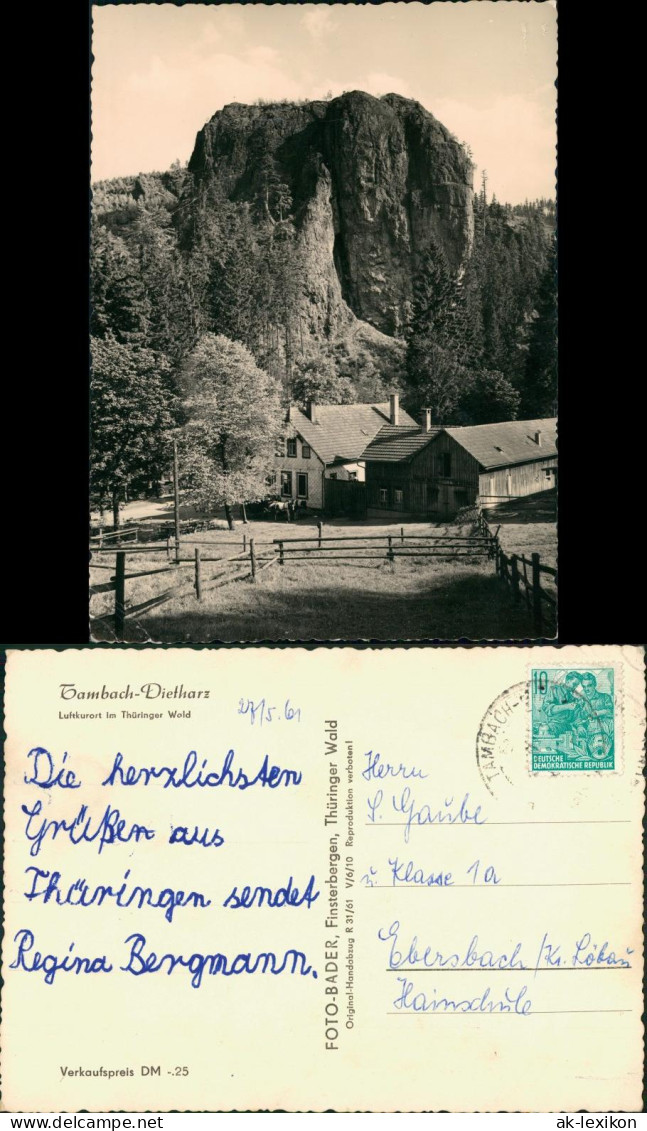 Tambach-Dietharz
Luftkurort im Thüringer Wald
27/5.61
Die herzlichsten
Grüßen aus
Thüringen sendet
Regina Bergmann.
Verkaufspreis DM -.25
FOTO-BADER, Finsterbergen, Thüringer Wald
Original-Handabzug R 31/61 V/6/10 Reproduktion verboten!
10
DEUTSCHE
DEMOKRATISCHE REPUBLIK
TAMBACH-
Herrn
S. Gaube
u. Klasse 1a
Ebersbach/Kr. Löbau
Hainschule
oldthing.de
ak-lexikon